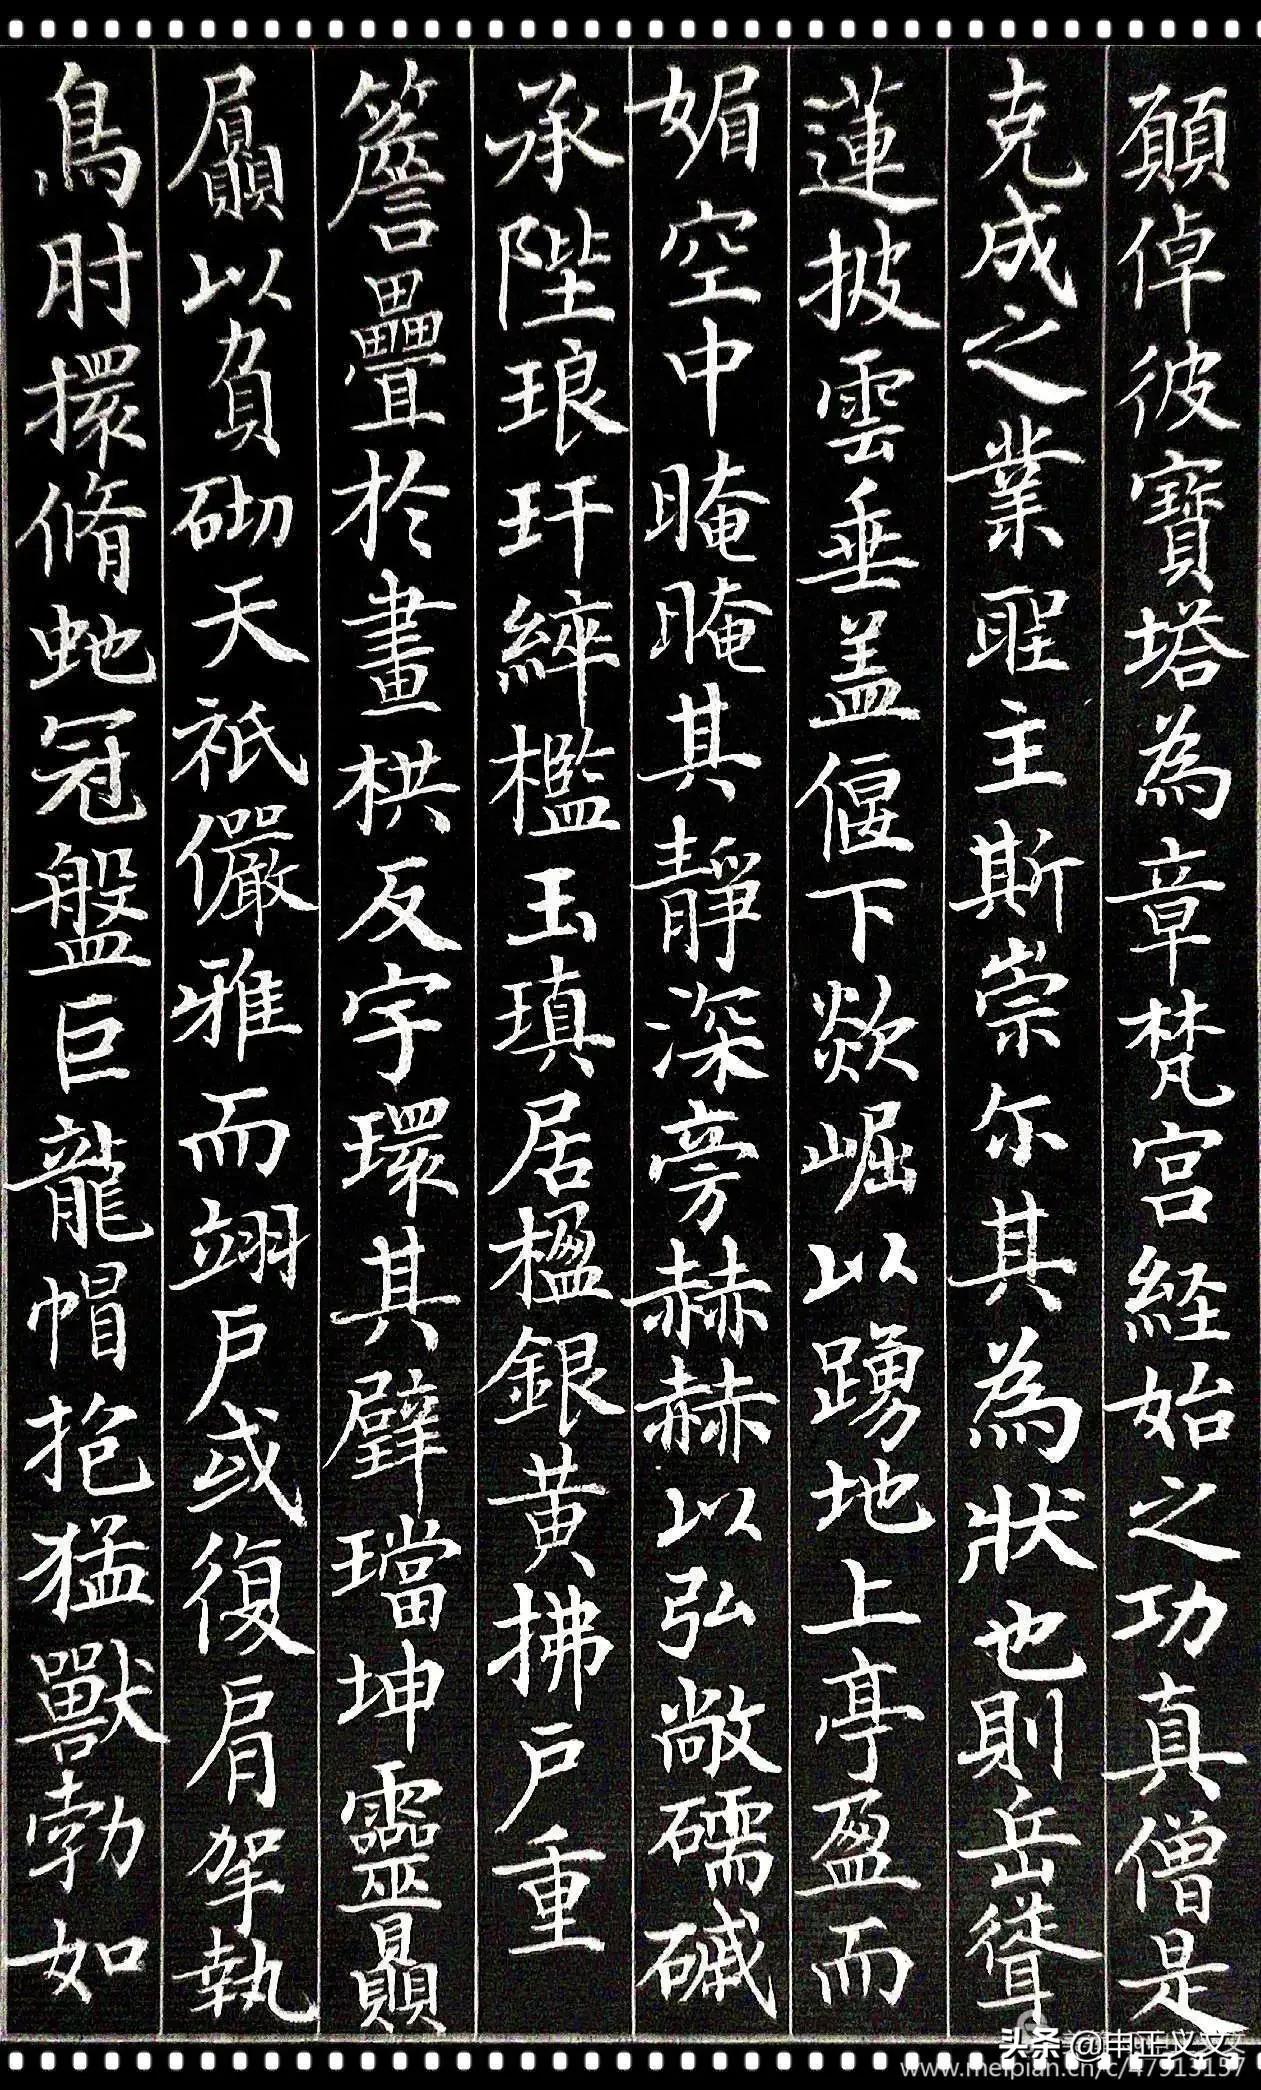 願倬彼寶塔為章梵宮経始之功真僧是
克成之業聖主斯崇尒其為狀也則岳聳
蓮披雲垂盖偃下欻崛以踴地上亭盈而
媚空中晻晻其靜深旁赫赫以弘敞礝磩
承陛琅玕綷檻玉瑱居楹銀黄拂戶重
簷疊於畫栱反宇環其璧璫坤靈贔
屭以負砌天祇儼雅而翊戶或復肩拏執
鳥肘擐脩虵冠盤巨龍帽抱猛獸勃如
头条 @申正义文
www.meipian.cn/c/47913157